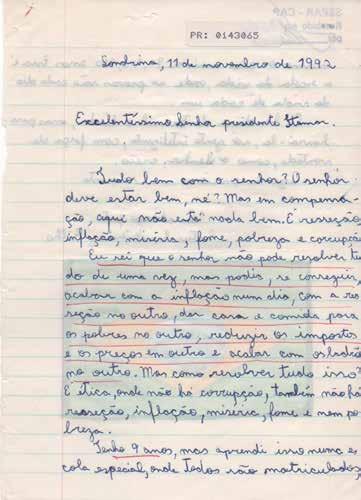 PR: 0143065
Londrina, 11 de novembro de 1992
Excelentíssimo Senhor presidente Itamar.
Tudo bem com o senhor? O senhor
deve estar bem, né? Mas em compensa-
ção, aqui não está nada bem. É resseção,
inflação, miséria, fome, pobreza e corrupção
Eu sei que o senhor não pode resolver tu
do de uma vez, mas podia, se conseguir,
acabar com a inflação num dia, com a res
seção no outro, dar casa e comida para
os pobres no outro, reduzir os impostos
e os preços em outro e acabar com os ladrões
no outro. Mas como resolver tudo isso?
É ética, onde não há corrupção, também não há
resseção, inflação, miséria, fome e nem po
breza.
Tenho 9 anos, mas aprendi isso numa es
cola especial, onde todos são matriculados,